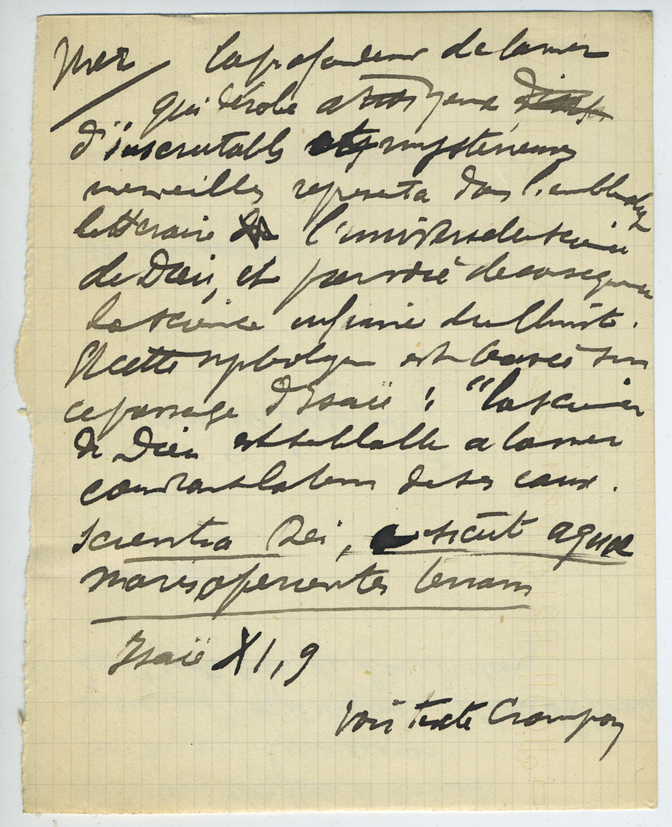 Mer la profondeur de la mer
qui dérobe à nos yeux
d'inscrutables et mystérieuses
merveilles représenta dans l'emblématique
littéraire l'universelle science
de Dieu, et par voie de conséquence
la science infinie du Christ.
Et cette symbolique est basée sur
ce passage d'Isaïe : "la science
de Dieu est semblable à la mer
couvrant la terre de ses eaux.
Scientia Dei, sicut aquae
maris operientes terram
Isaïe XI, 9
voir texte Crampon